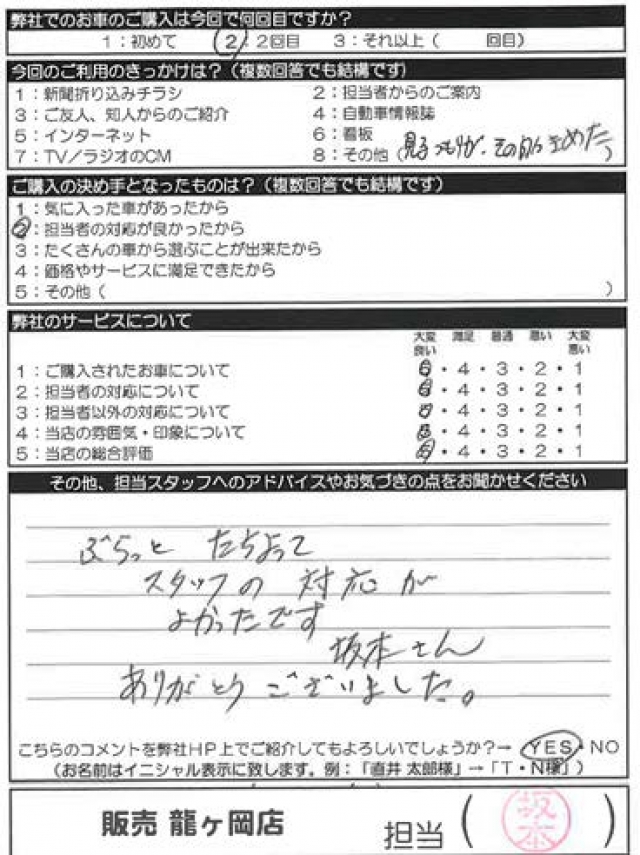 弊社でのお車のご購入は今回で何回目ですか？
1：初めて 2：2回目 3：それ以上（ 回目）
今回のご利用のきっかけは？（複数回答でも結構です）
1：新聞折り込みチラシ 2：担当者からのご案内
3：ご友人、知人からのご紹介 4：自動車情報誌
5：インターネット 6：看板
7：TV／ラジオのCM 8：その他（見るつもりが、その きめた）
ご購入の決め手となったものは？（複数回答でも結構です）
1：気に入った車があったから
2：担当者の対応が良かったから
3：たくさんの車から選ぶことが出来たから
4：価格やサービスに満足できたから
5：その他（ ）
弊社のサービスについて
大変良い 満足 普通 悪い 大変悪い
1：ご購入されたお車について 5・4・3・2・1
2：担当者の対応について 5・4・3・2・1
3：担当者以外の対応について 5・4・3・2・1
4：当店の雰囲気・印象について 5・4・3・2・1
5：当店の総合評価 5・4・3・2・1
その他、担当スタッフへのアドバイスやお気づきの点をお聞かせください
ぶらっと たちよって
スタッフの 対応が
よかったです
坂本さん
ありがとう ございました。
こちらのコメントを弊社HP上でご紹介してもよろしいでしょうか？→ YES・NO
（お名前はイニシャル表示に致します。例：「直井 太郎様」→「T・N様」）
販売 龍ヶ岡店
担当（坂本）